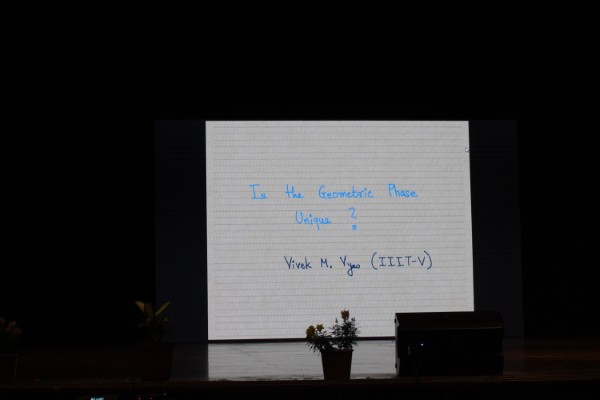 Is the Geometric Phase
Unique ?
Vivek M. Vyas (IIIT-V)